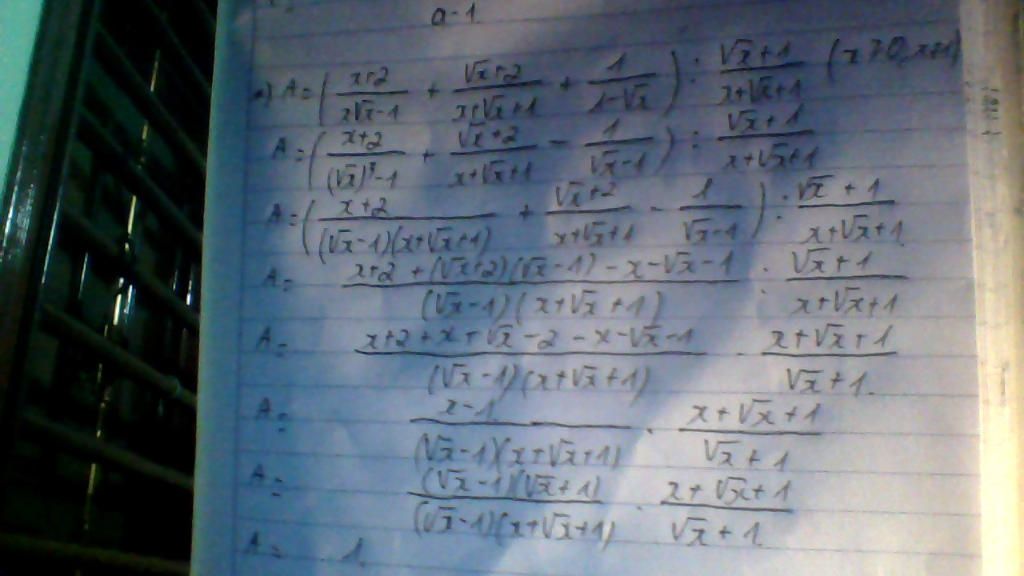 a-1
a) A = ( (x+2)/(x√x-1) + (√x+2)/(x+√x+1) + 1/(1-√x) ) : (√x+1)/(x+√x+1) (x≥0, x≠1)
A = ( (x+2)/((√x)³-1) + (√x+2)/(x+√x+1) - 1/(√x-1) ) : (√x+1)/(x+√x+1)
A = ( (x+2)/((√x-1)(x+√x+1)) + (√x+2)/(x+√x+1) - 1/(√x-1) ) : (√x+1)/(x+√x+1)
A = (x+2+(√x+2)(√x-1)-x-√x-1)/((√x-1)(x+√x+1)) : (√x+1)/(x+√x+1)
A = (x+2+x+√x-2-x-√x-1)/((√x-1)(x+√x+1)) . (x+√x+1)/(√x+1)
A = (x-1)/((√x-1)(x+√x+1)) . (x+√x+1)/(√x+1)
A = ((√x-1)(√x+1))/((√x-1)(x+√x+1)) . (x+√x+1)/(√x+1)
A = 1